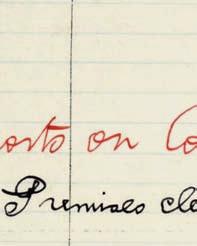 orts on Co
Premises cle